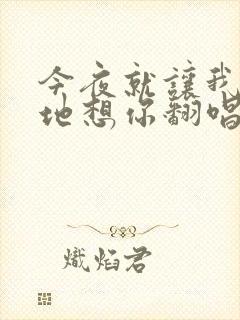 今夜就讓我
地想你翻唱
熾焰君